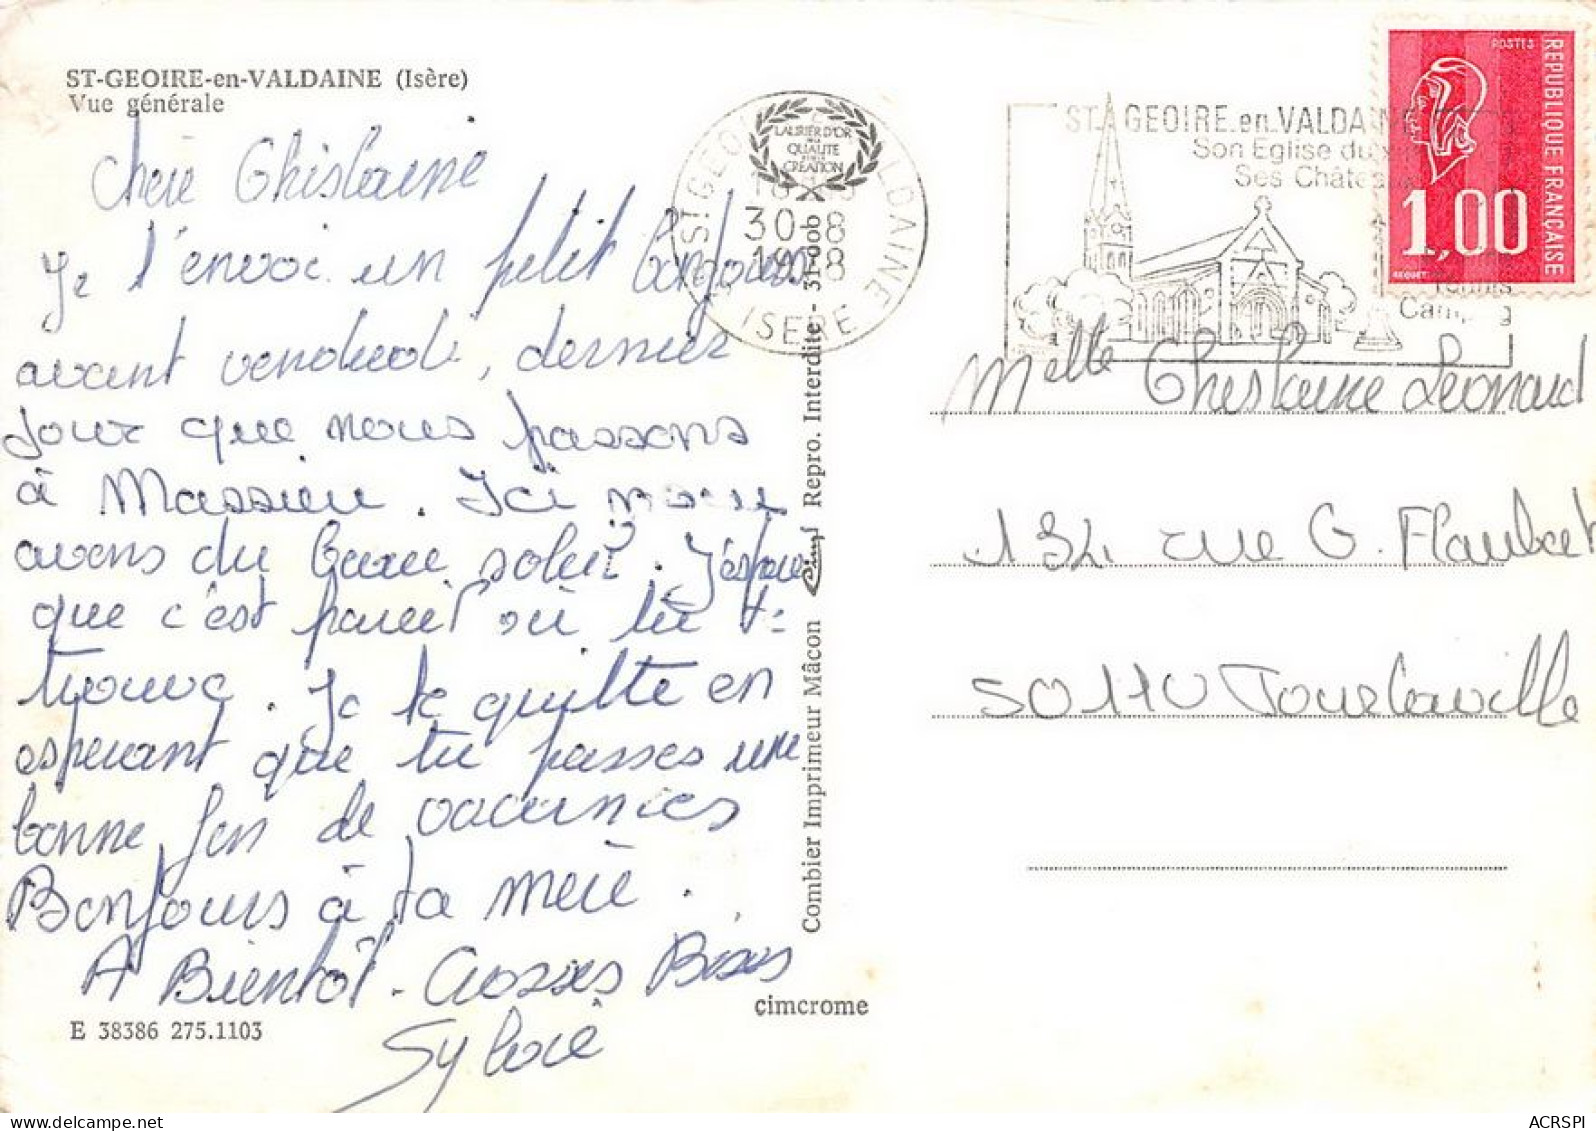 ST-GEOIRE-en-VALDAINE (Isère)
Vue générale
chère Ghislaine
Je t'envoi un petit bonjour
avant vendredi, dernier
jour que nous passons
à Massieu. Ici nous
avons du beau soleil. J'éspère
que c'est pareil où tu te
trouve. Je te quitte en
esperant que tu passes une
bonne fin de vacances
Bonjours à ta mère.
A Bientôt. Grosses Bises
Sylvie
E 38386 275.1103
Combier Imprimeur Mâcon Cim Repro. Interdite - 31-oob
LAURIER D'OR
DE LA
QUALITÉ
CRÉATION
ST GEOIRE VALDAINE
30-8
1978
ISERE
ST. GEOIRE.en.VALDAINE
Son Eglise du
Ses Château
Tennis
Camping
POSTES
REPUBLIQUE FRANÇAISE
1,00
BEQUET
Melle Ghislaine Leonard
132 rue G. Flaubert
50110 Tourlaville
cimcrome
ACRSPI